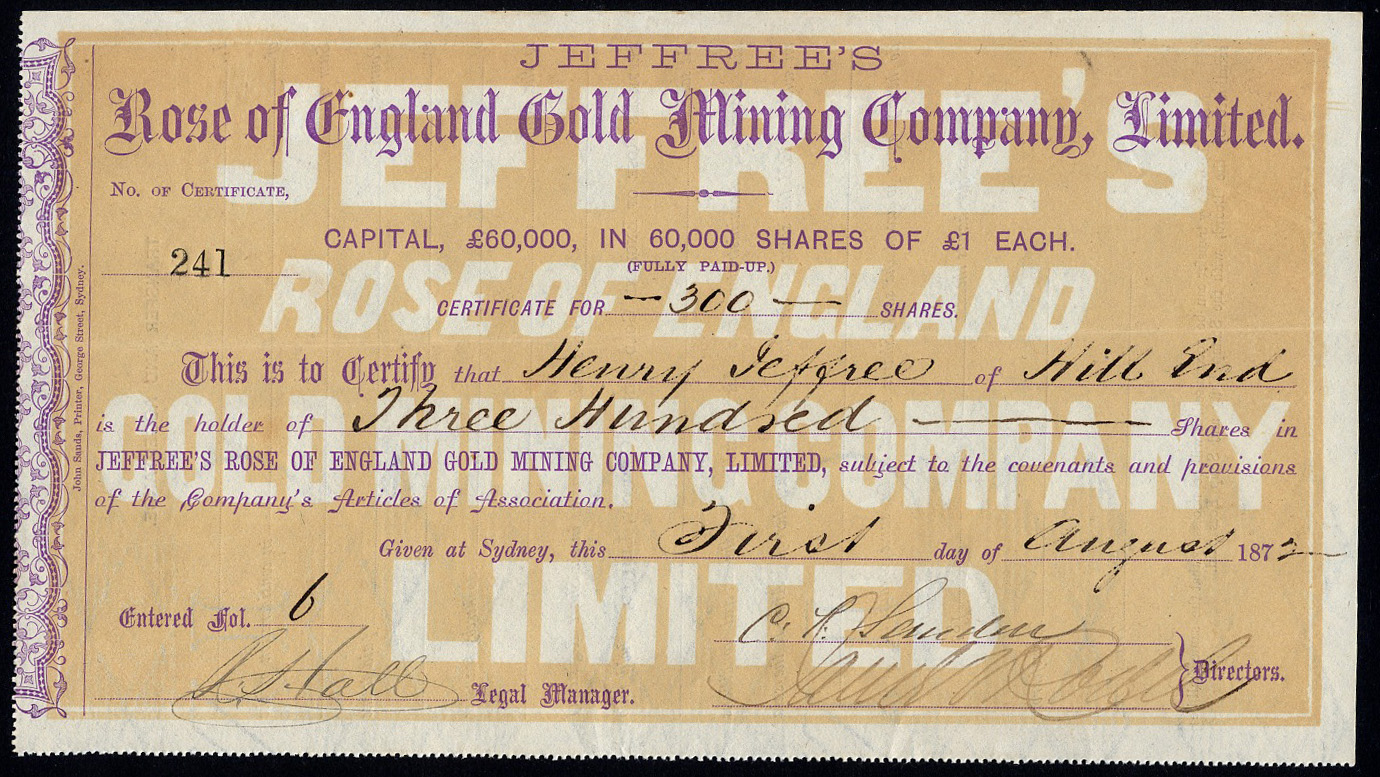 JEFFREE'S
Rose of England Gold Mining Company, Limited.
No. of Certificate,
241
CAPITAL, £60,000, IN 60,000 SHARES OF £1 EACH.
(FULLY PAID-UP.)
CERTIFICATE FOR — 300 — SHARES.
This is to Certify that Henry Jeffree of Hill End
is the holder of Three Hundred ——— Shares in
JEFFREE'S ROSE OF ENGLAND GOLD MINING COMPANY, LIMITED, subject to the covenants and provisions
of the Company's Articles of Association.
Given at Sydney, this First day of August 1872
Entered Fol. 6
Hall Legal Manager.
Directors.
John Sands, Printer, George Street, Sydney.
JEFFREE'S
ROSE OF ENGLAND
GOLD MINING COMPANY
LIMITED